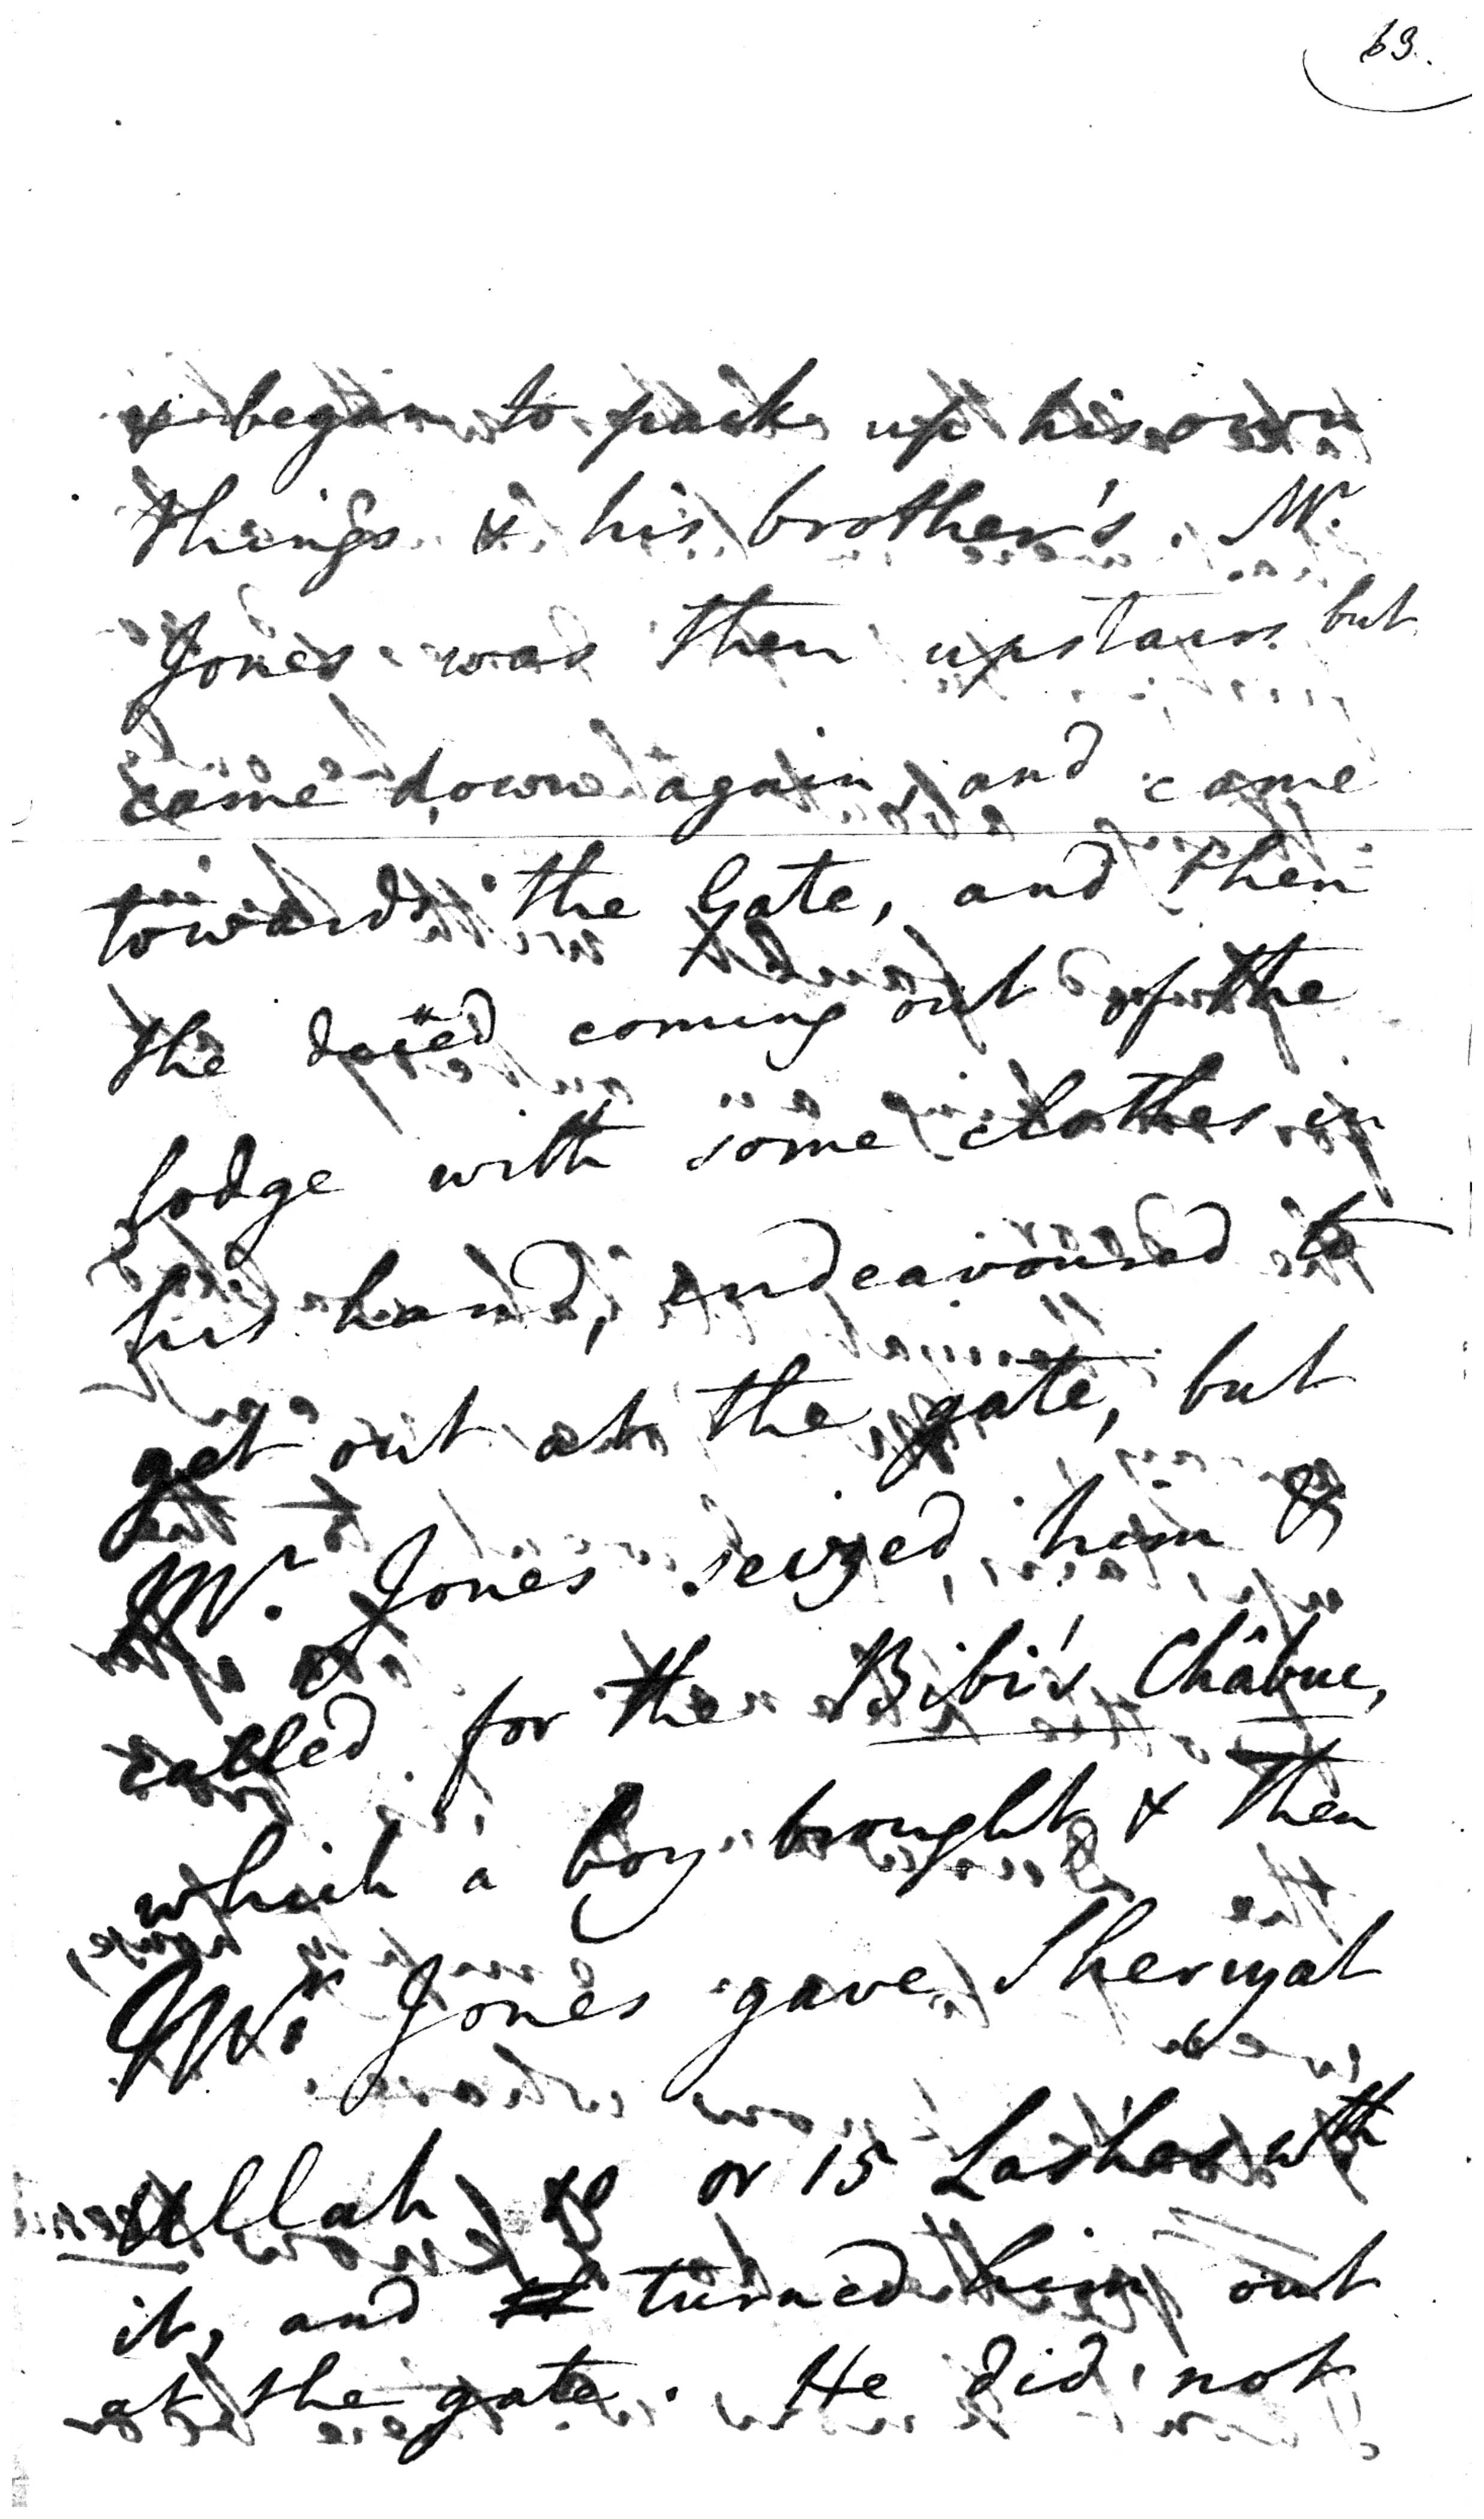 63.
& began to pack up his own
things & his brother's. Mr.
Jones was then upstairs but
came down again and came
towards the Gate, and then
the dec^ed coming out of the
lodge with some clothes in
his hand, endeavoured to
get out at the gate, but
Mr. Jones seized him &
called for the Bibi's Châbuc,
which a boy brought & then
Mr. Jones gave Sheriyat
ullah 10 or 15 Lashes wth
it, and turned him out
at the gate. He did not